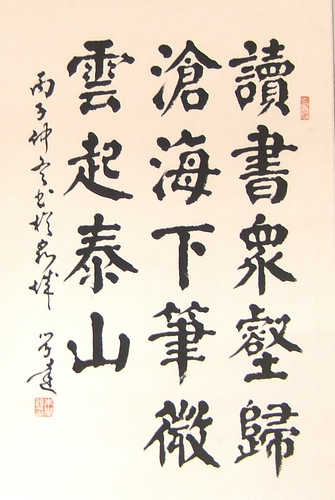 讀書衆壑歸
滄海下筆微
雲起泰山
丙子仲冬書於泉城